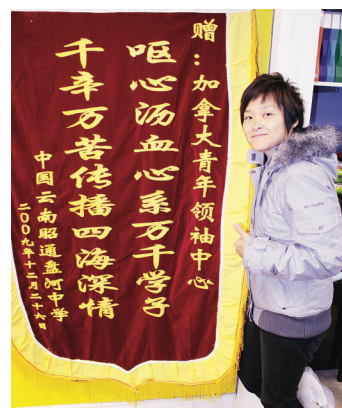 赠:加拿大青年领袖中心
呕心沥血心系万千学子
千辛万苦传播四海深情
中国云南昭通盘河中学
二00九年十二月二十六日
Columbia